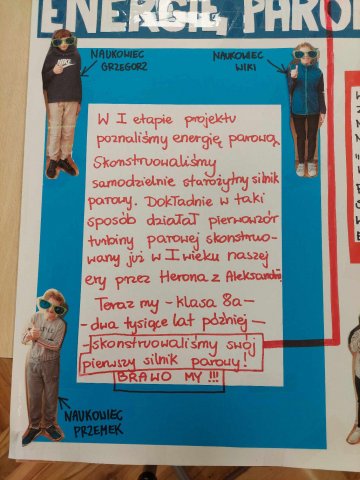 ENERGIĘ PARO
NAUKOWIEC
GRZEGORZ
NAUKOWIEC
WIKI
W I etapie projektu
poznaliśmy energię parową
Skonstruowaliśmy
samodzielnie starożytny silnik
parowy. Dokładnie w taki
sposób działał pierwowzór
turbiny parowej skonstruo-
wany już w I wieku naszej
ery przez Herona z Aleksandrii
Teraz my - klasa 8a -
- dwa tysiące lat później -
- skonstruowaliśmy swój
pierwszy silnik parowy!
BRAWO MY !!!
NAUKOWIEC
PRZEMEK